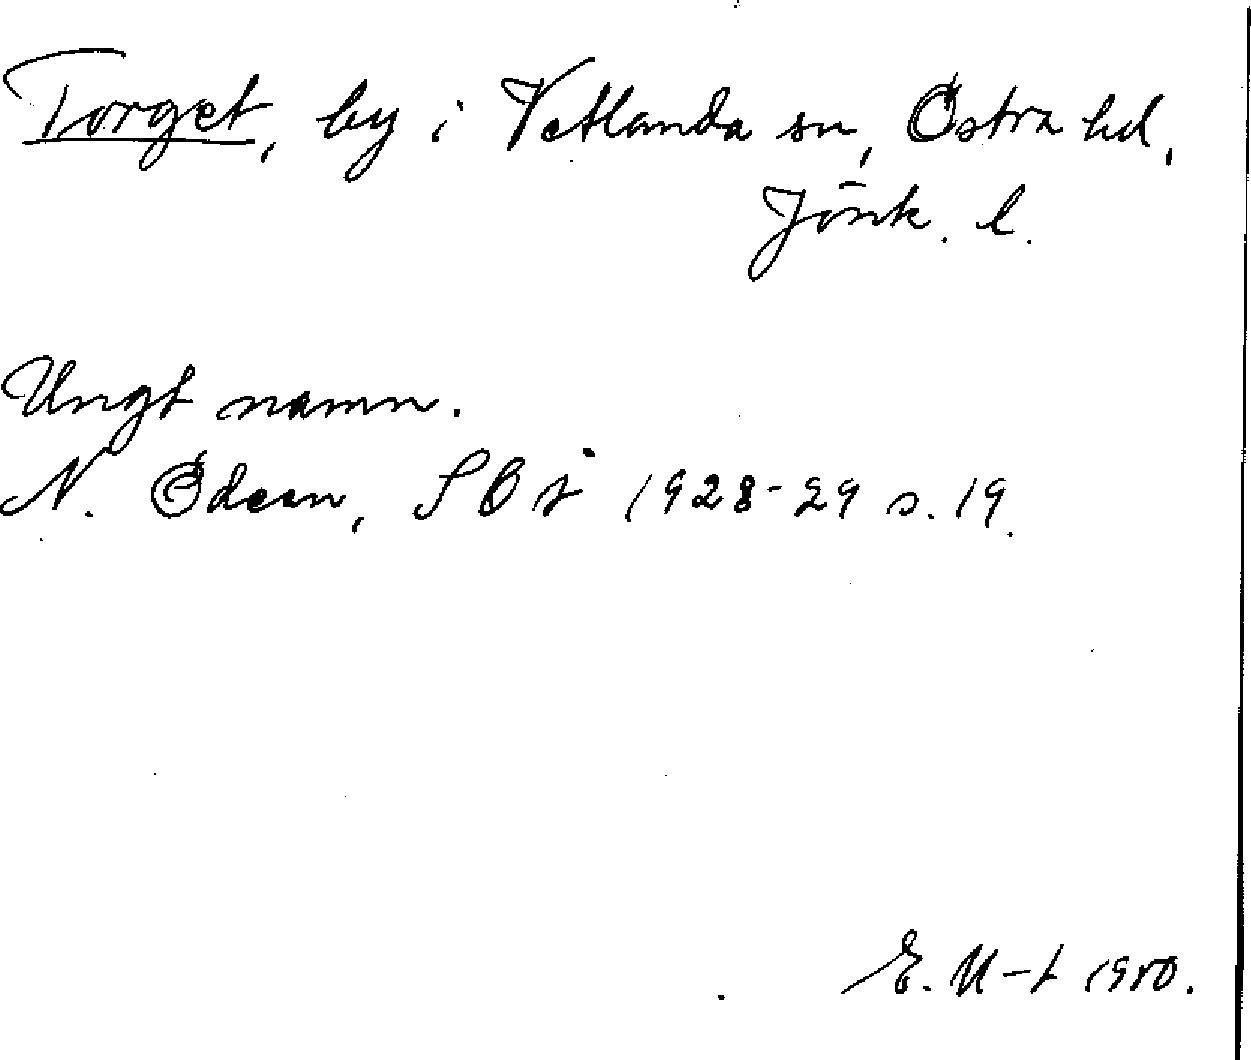 Torget, by i Vetlanda sn, Östra hd,
Jönk. l.
Ungt namn.
N. Ödeen, SOÅ 1928-29 s. 19.
E. U-t 1950.